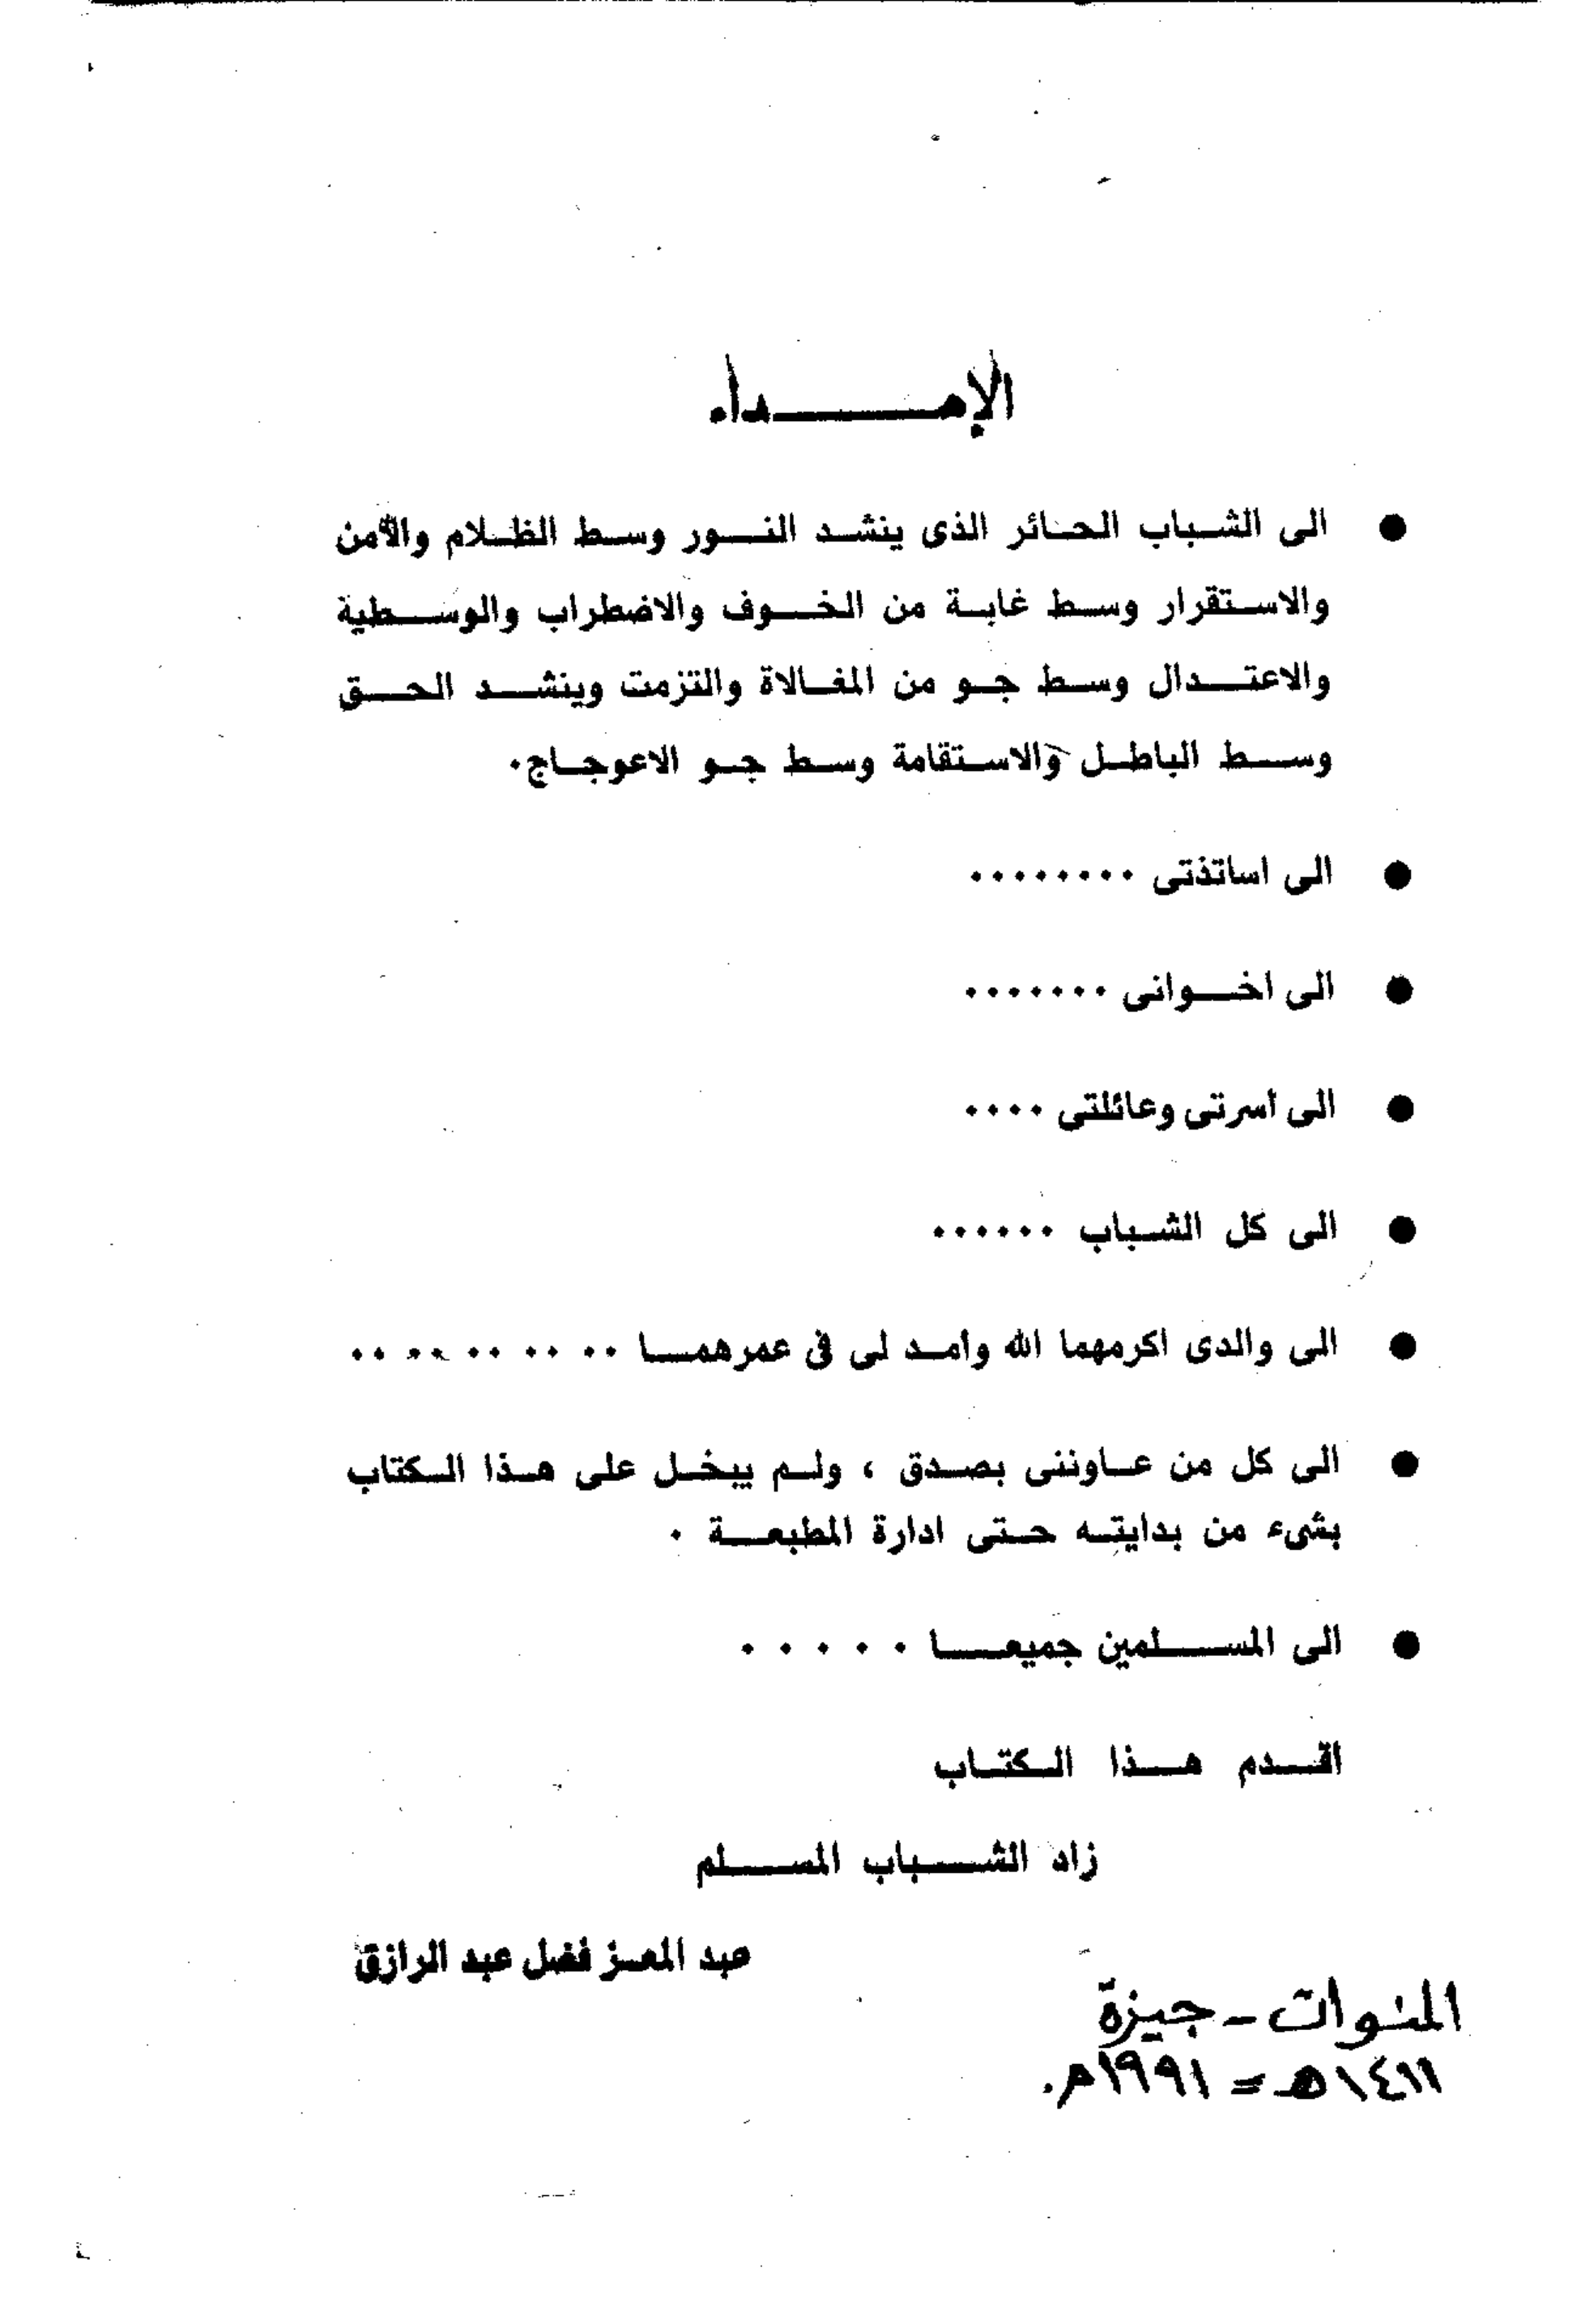 الإهداء
● الى الشباب الحائر الذى ينشد النور وسط الظلام والأمن
والاستقرار وسط غابة من الخوف والاضطراب والوسطية
والاعتدال وسط جو من المغالاة والتزمت وينشد الحق
وسط الباطل والاستقامة وسط جو الاعوجاج.
● الى اساتذتى ........
● الى اخوانى .......
● الى أسرتى وعائلتى ....
● الى كل الشباب ......
● الى والدى اكرمهما الله وأمد لى فى عمرهما .. .. .. .. ..
● الى كل من عاوننى بصدق ، ولم يبخل على هذا الكتاب
بشىء من بدايته حتى ادارة المطبعة .
● الى المسلمين جميعا . . . . .
اقدم هذا الكتاب
زاد الشباب المسلم
عبد المعز فضل عبد الرازق
المنوات - جيزة
١٤١١هـ = ١٩٩١م.